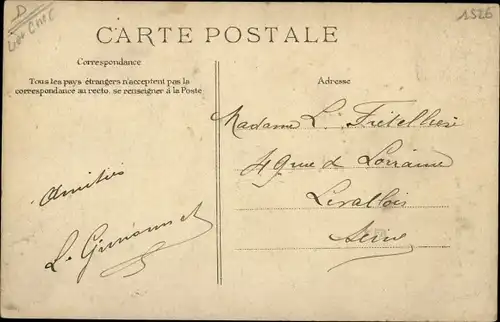 D
1526
CARTE POSTALE
Correspondance
Tous les pays étrangers n'acceptent pas la
correspondance au recto. se renseigner à la Poste
Adresse
Madame L.
49 rue de Lorraine
Levallois
Seine
Amitiés